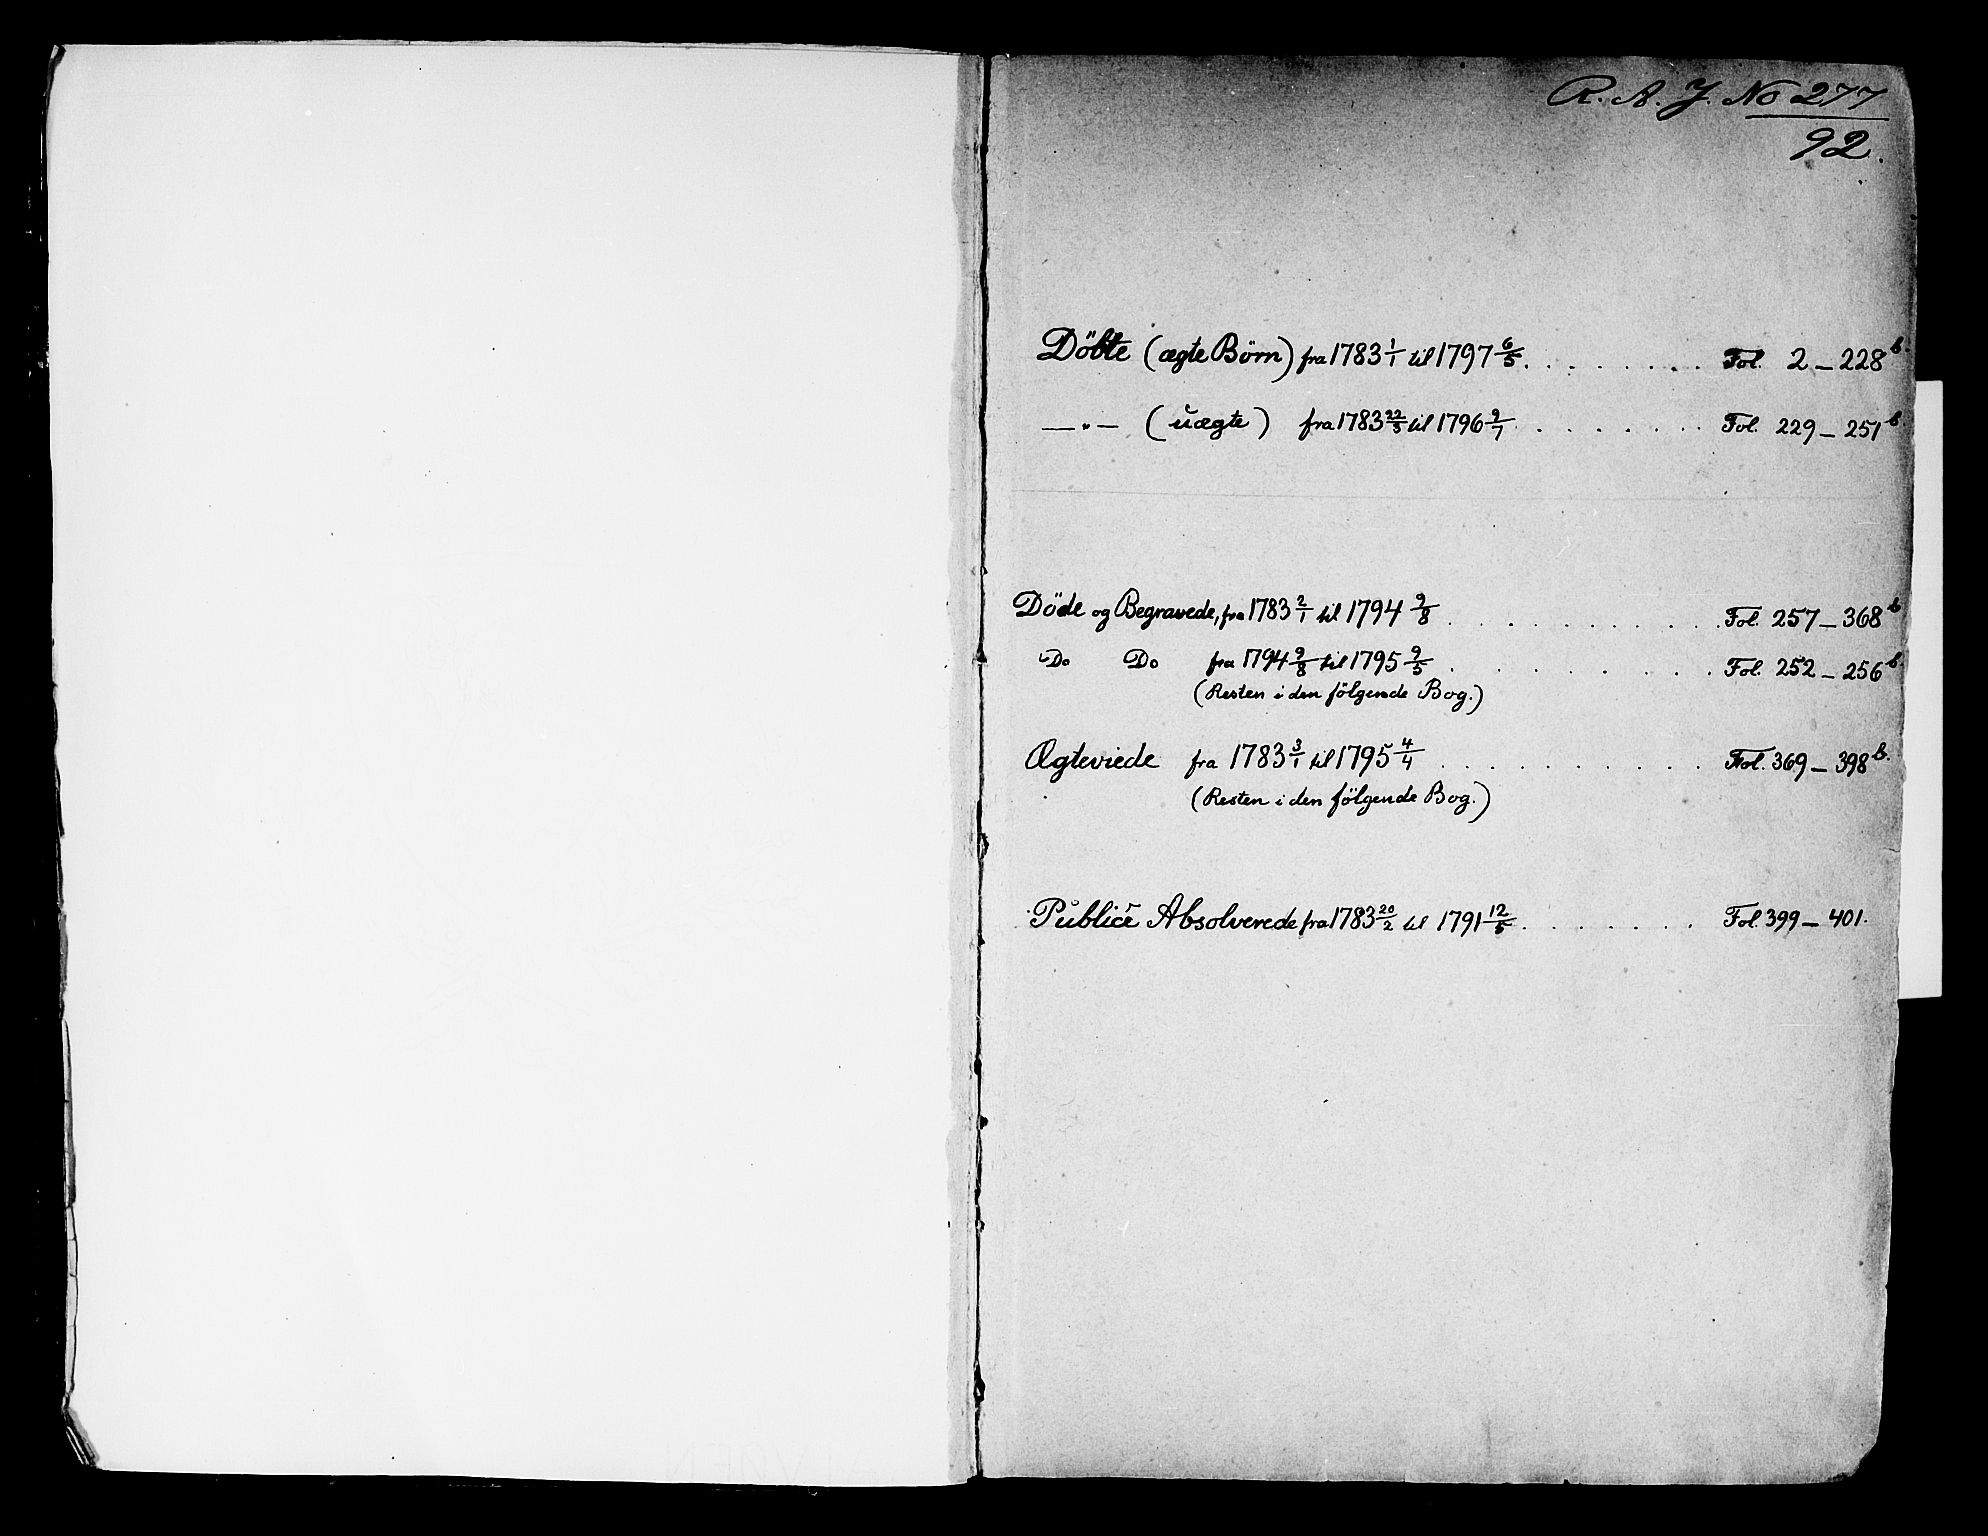 R. A. J. No 277
92.
Döbte (ægte Börn) fra 1783 1/1 til 1797 6/5 . . . . . . . . Fol. 2 — 228 b.
— „ — (uægte) fra 1783 22/3 til 1796 9/7 . . . . . . . . Fol. 229 — 251 b.
Döde og Begravede, fra 1783 2/1 til 1794 9/8 . . . . . . . . . . Fol. 257 — 368 b
Do Do fra 1794 9/8 til 1795 9/5 . . . . . . . . Fol. 252 — 256 b.
(Resten i den fölgende Bog.)
Ægteviede fra 1783 3/1 til 1795 4/4 . . . . . . . . . . Fol. 369 — 398 b.
(Resten i den fölgende Bog.)
Publice Absolverede fra 1783 20/2 til 1791 12/5 . . . . . . . Fol. 399 — 401.